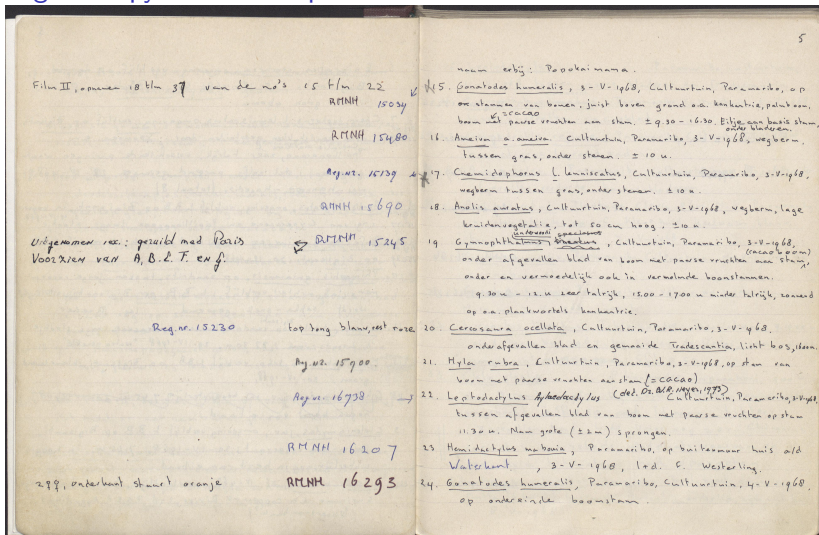 Film II, opnamen 18 t/m 37 van de no's 15 t/m 22
RMNH 15034
RMNH 15480
Reg. nr. 15139
RMNH 15690
Uitgenomen ex.: geruild med Paris
RMNH 15245
Voorzien van A, B. E. F. en G.
Reg. nr. 15230
top tong blauw, rest roze
Reg. nr. 15700
Reg. nr. 16738
RMNH 16207
2 ♀♀, onderkant staart oranje
RMNH 16293
5
naam erbij: Popokaimama.
15. Gonatodes humeralis, 3-V-1968, Cultuurtuin, Paramaribo, op
stammen van bomen, juist boven grond o.a. kankantrie, palmboom,
= cacao
boom met paarse vruchten aan stam. ± 9.30 - 16.30. Eitje aan basis stam,
onder bladeren.
16. Ameiva a. ameiva. Cultuurtuin, Paramaribo, 3-V-1968, wegberm,
tussen gras, onder stenen. ± 10 u.
17. Cnemidophorus l. lemniscatus, Cultuurtuin, Paramaribo, 3-V-1968.
wegberm tussen gras, onder stenen. ± 10 u.
18. Anolis auratus, Cultuurtuin, Paramaribo, 3-V-1968, wegberm, lage
kruidenvegetatie, tot 50 cm hoog. ± 10 u.
underwoodi
19 Gymnophthalmus speciosus, Cultuurtuin, Paramaribo, 3-V-1968,
(cacaoboom)
onder afgevallen blad van boom met paarse vruchten aan stam,
onder en vermoedelijk ook in vermolmde boomstammen.
9.30 u - 12. u zeer talrijk, 15.00 - 17.00 u minder talrijk, zonnend
op o.a. plankwortels kankantrie.
20. Cercosaura ocellata, Cultuurtuin, Paramaribo, 3-V-1968.
onder afgevallen blad en gemaaide Tradescantia, licht bos,
21. Hyla rubra, Cultuurtuin, Paramaribo, 3-V-1968, op stam van
boom met paarse vruchten aan stam (= cacao)
(det. Dr. W.R. Heyer, 1973)
22. Leptodactylus Cultuurtuin, Paramaribo, 3-V-1968.
tussen afgevallen blad van boom met paarse vruchten op stam
11.30 u. Nam grote (± 2m) sprongen.
23 Hemidactylus mabouia, Paramaribo, op buitenmuur huis a/d
Waterkant, 3-V-1968, Westerling.
24. Gonatodes humeralis, Paramaribo, Cultuurtuin, 4-V-1968.
op ondereinde boomstam.